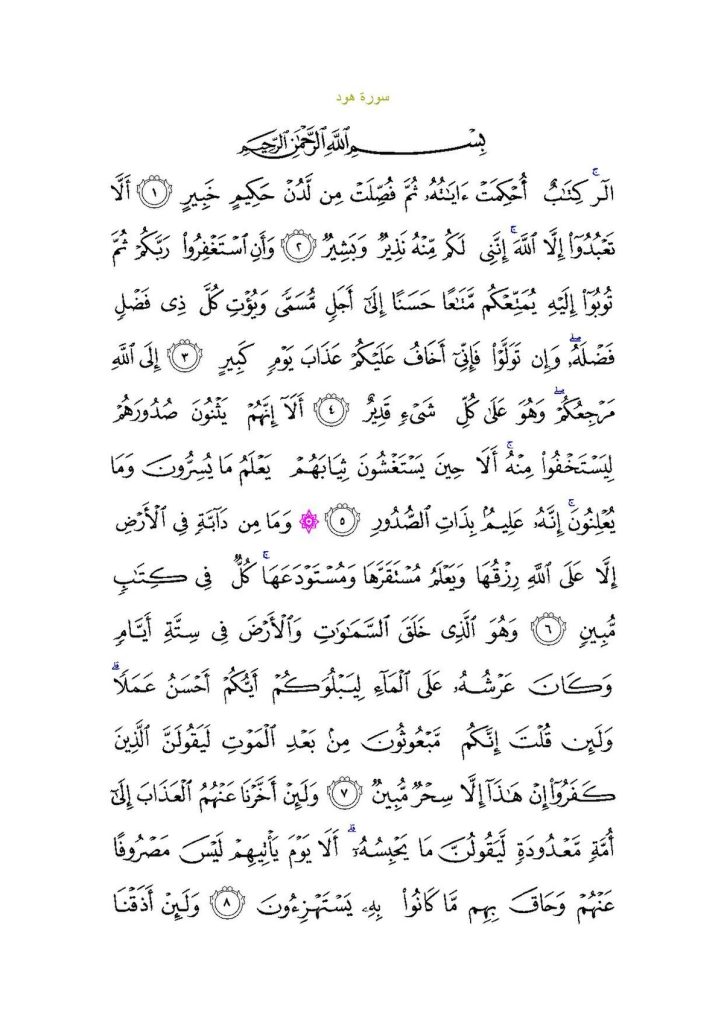 سورة هود
بِسْمِ اللَّهِ الرَّحْمَٰنِ الرَّحِيمِ
الٓرۚ كِتَٰبٌ أُحْكِمَتْ ءَايَٰتُهُۥ ثُمَّ فُصِّلَتْ مِن لَّدُنْ حَكِيمٍ خَبِيرٍ ﴿١﴾ أَلَّا
تَعْبُدُوٓا۟ إِلَّا اللَّهَۚ إِنَّنِى لَكُم مِّنْهُ نَذِيرٌ وَبَشِيرٌ ﴿٢﴾ وَأَنِ اسْتَغْفِرُوا۟ رَبَّكُمْ ثُمَّ
تُوبُوٓا۟ إِلَيْهِ يُمَتِّعْكُم مَّتَٰعًا حَسَنًا إِلَىٰٓ أَجَلٍ مُّسَمًّى وَيُؤْتِ كُلَّ ذِى فَضْلٍ
فَضْلَهُۥۖ وَإِن تَوَلَّوْا۟ فَإِنِّىٓ أَخَافُ عَلَيْكُمْ عَذَابَ يَوْمٍ كَبِيرٍ ﴿٣﴾ إِلَى اللَّهِ
مَرْجِعُكُمْۖ وَهُوَ عَلَىٰ كُلِّ شَىْءٍ قَدِيرٌ ﴿٤﴾ أَلَآ إِنَّهُمْ يَثْنُونَ صُدُورَهُمْ
لِيَسْتَخْفُوا۟ مِنْهُۚ أَلَا حِينَ يَسْتَغْشُونَ ثِيَابَهُمْ يَعْلَمُ مَا يُسِرُّونَ وَمَا
يُعْلِنُونَۚ إِنَّهُۥ عَلِيمٌۢ بِذَاتِ الصُّدُورِ ﴿٥﴾ ۞ وَمَا مِن دَآبَّةٍ فِى الْأَرْضِ
إِلَّا عَلَى اللَّهِ رِزْقُهَا وَيَعْلَمُ مُسْتَقَرَّهَا وَمُسْتَوْدَعَهَاۚ كُلٌّ فِى كِتَٰبٍ
مُّبِينٍ ﴿٦﴾ وَهُوَ الَّذِى خَلَقَ السَّمَٰوَٰتِ وَالْأَرْضَ فِى سِتَّةِ أَيَّامٍ
وَكَانَ عَرْشُهُۥ عَلَى الْمَآءِ لِيَبْلُوَكُمْ أَيُّكُمْ أَحْسَنُ عَمَلًاۗ
وَلَئِن قُلْتَ إِنَّكُم مَّبْعُوثُونَ مِنۢ بَعْدِ الْمَوْتِ لَيَقُولَنَّ الَّذِينَ
كَفَرُوٓا۟ إِنْ هَٰذَآ إِلَّا سِحْرٌ مُّبِينٌ ﴿٧﴾ وَلَئِنْ أَخَّرْنَا عَنْهُمُ الْعَذَابَ إِلَىٰٓ
أُمَّةٍ مَّعْدُودَةٍ لَّيَقُولُنَّ مَا يَحْبِسُهُۥٓۗ أَلَا يَوْمَ يَأْتِيهِمْ لَيْسَ مَصْرُوفًا
عَنْهُمْ وَحَاقَ بِهِم مَّا كَانُوا۟ بِهِۦ يَسْتَهْزِءُونَ ﴿٨﴾ وَلَئِنْ أَذَقْنَا